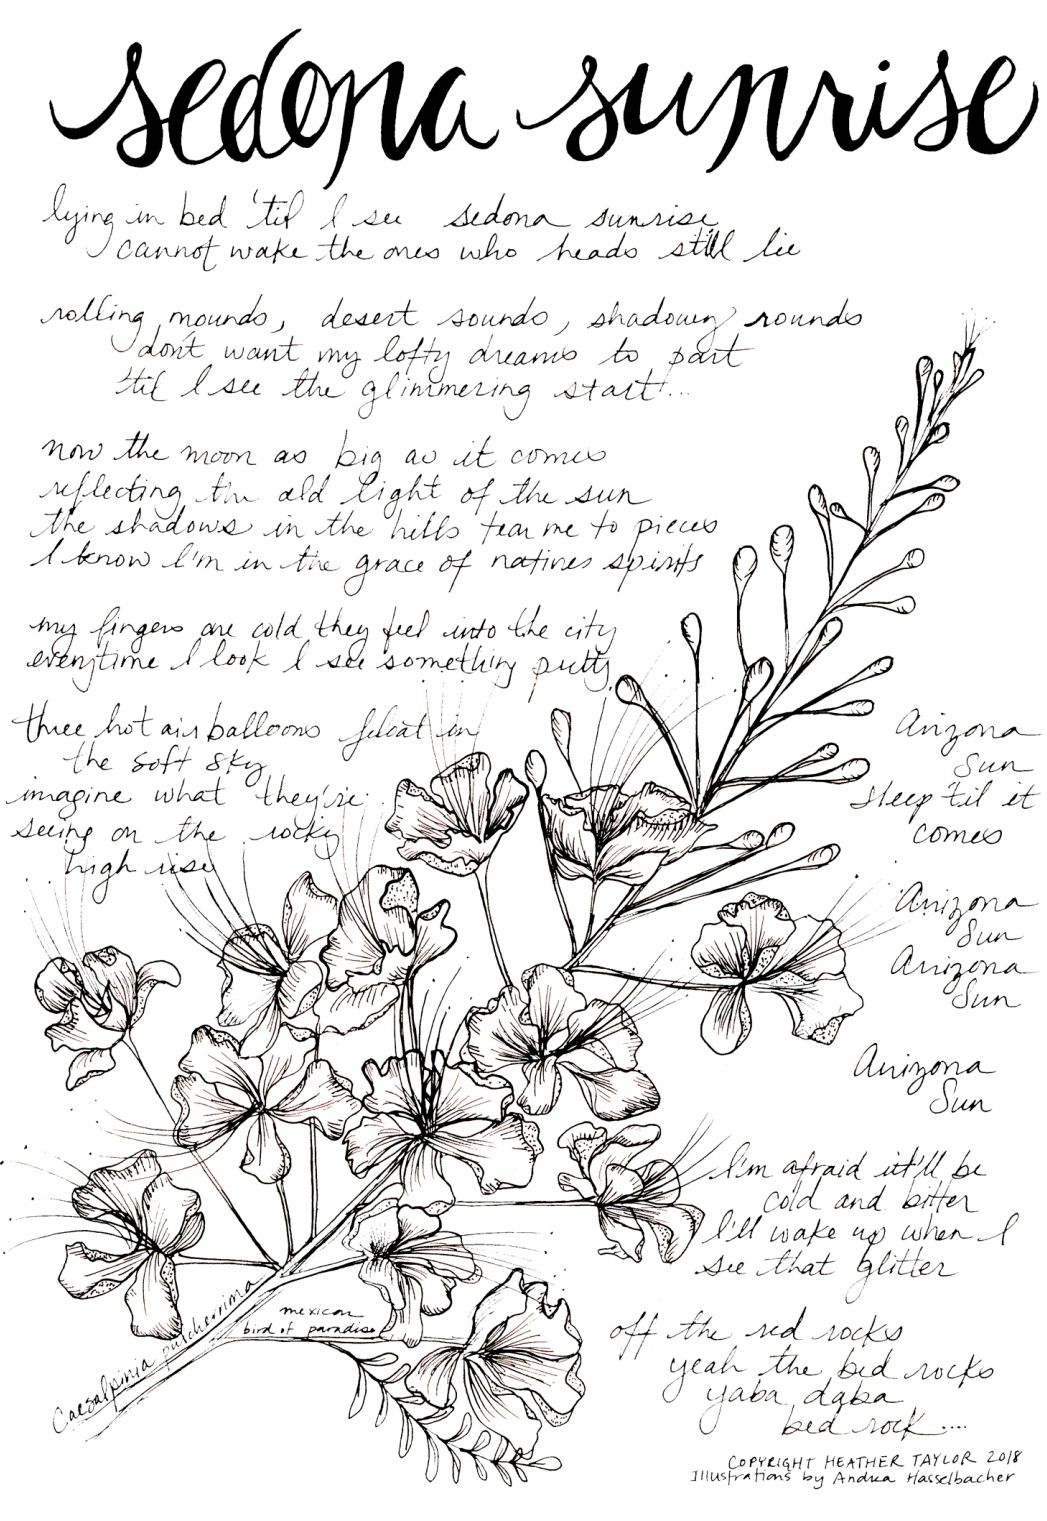 sedona sunrise
lying in bed 'til I see sedona sunrise
cannot wake the ones who heads still lie
rolling mounds, desert sounds, shadowy rounds
don't want my lofty dreams to part
'til I see the glimmering start!...
now the moon as big as it comes
reflecting the old light of the sun
the shadows in the hills tear me to pieces
I know I'm in the grace of natives spirits
my fingers are cold they feel into the city
everytime I look I see something pretty
three hot air balloons float in
the soft sky
imagine what they're
seeing on the rocky
high rise
Arizona
Sun
sleep 'til it
comes
Arizona
Sun
Arizona
Sun
Arizona
Sun
I'm afraid it'll be
cold and bitter
I'll wake up when I
see that glitter
off the red rocks
yeah the bed rocks
yaba daba
bed rock....
Caesalpinia pulcherrima
mexican
bird of paradise
COPYRIGHT HEATHER TAYLOR 2018
Illustrations by Andrea Hasselbacher